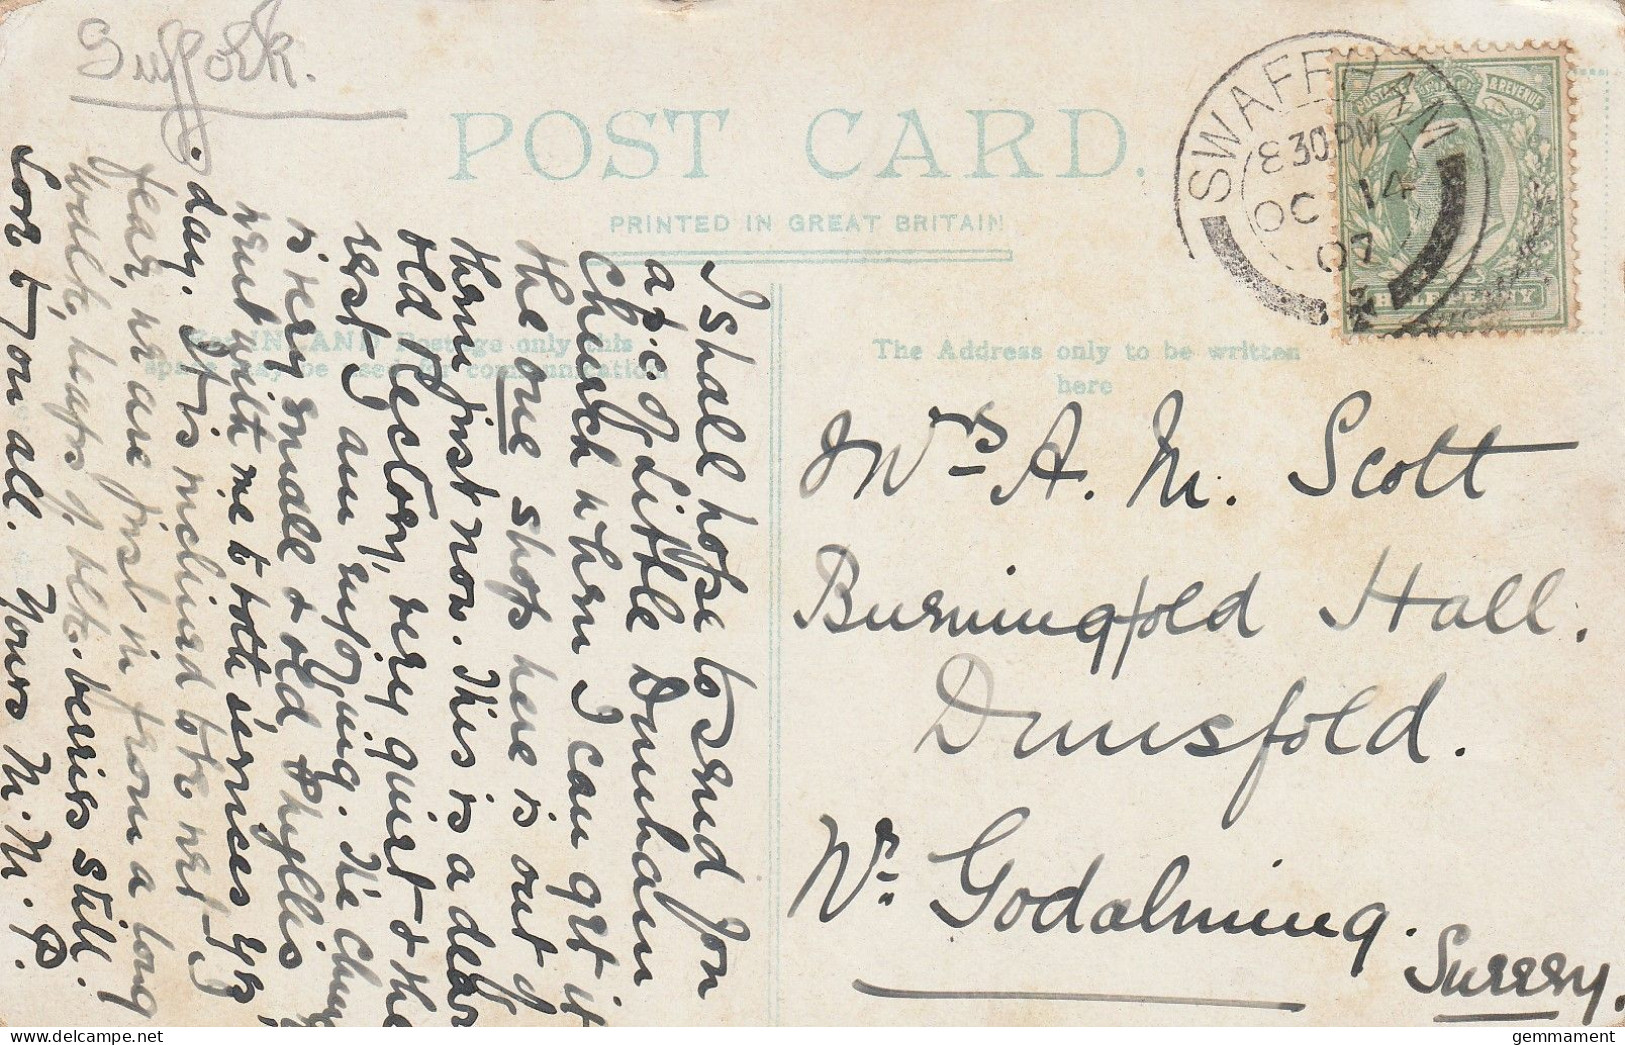 Suffolk.
POST CARD.
PRINTED IN GREAT BRITAIN
For INLAND Postage only this
space may be used for communication.
The Address only to be written
here
SWAFFHAM
8 30 PM
OC 14
07
POSTAGE & REVENUE
HALFPENNY
I shall hope to send you
a p.c. of Little Dunham
Church when I can get it
the one shop here is out of
them just now. This is a dear
old Rectory, very quiet & the
rest I am enjoying. The Church
is very small & old. Phyllis
went with me to both services yes
day. It is inclined to be wet I
fear, we are just in from a long
walk, heaps of blk. berries still.
Love to you all. Yours M. M. P.
Mrs A. M. Scott
Burningfold Hall.
Dunsfold.
Nr. Godalming.
Surrey.
gemmament